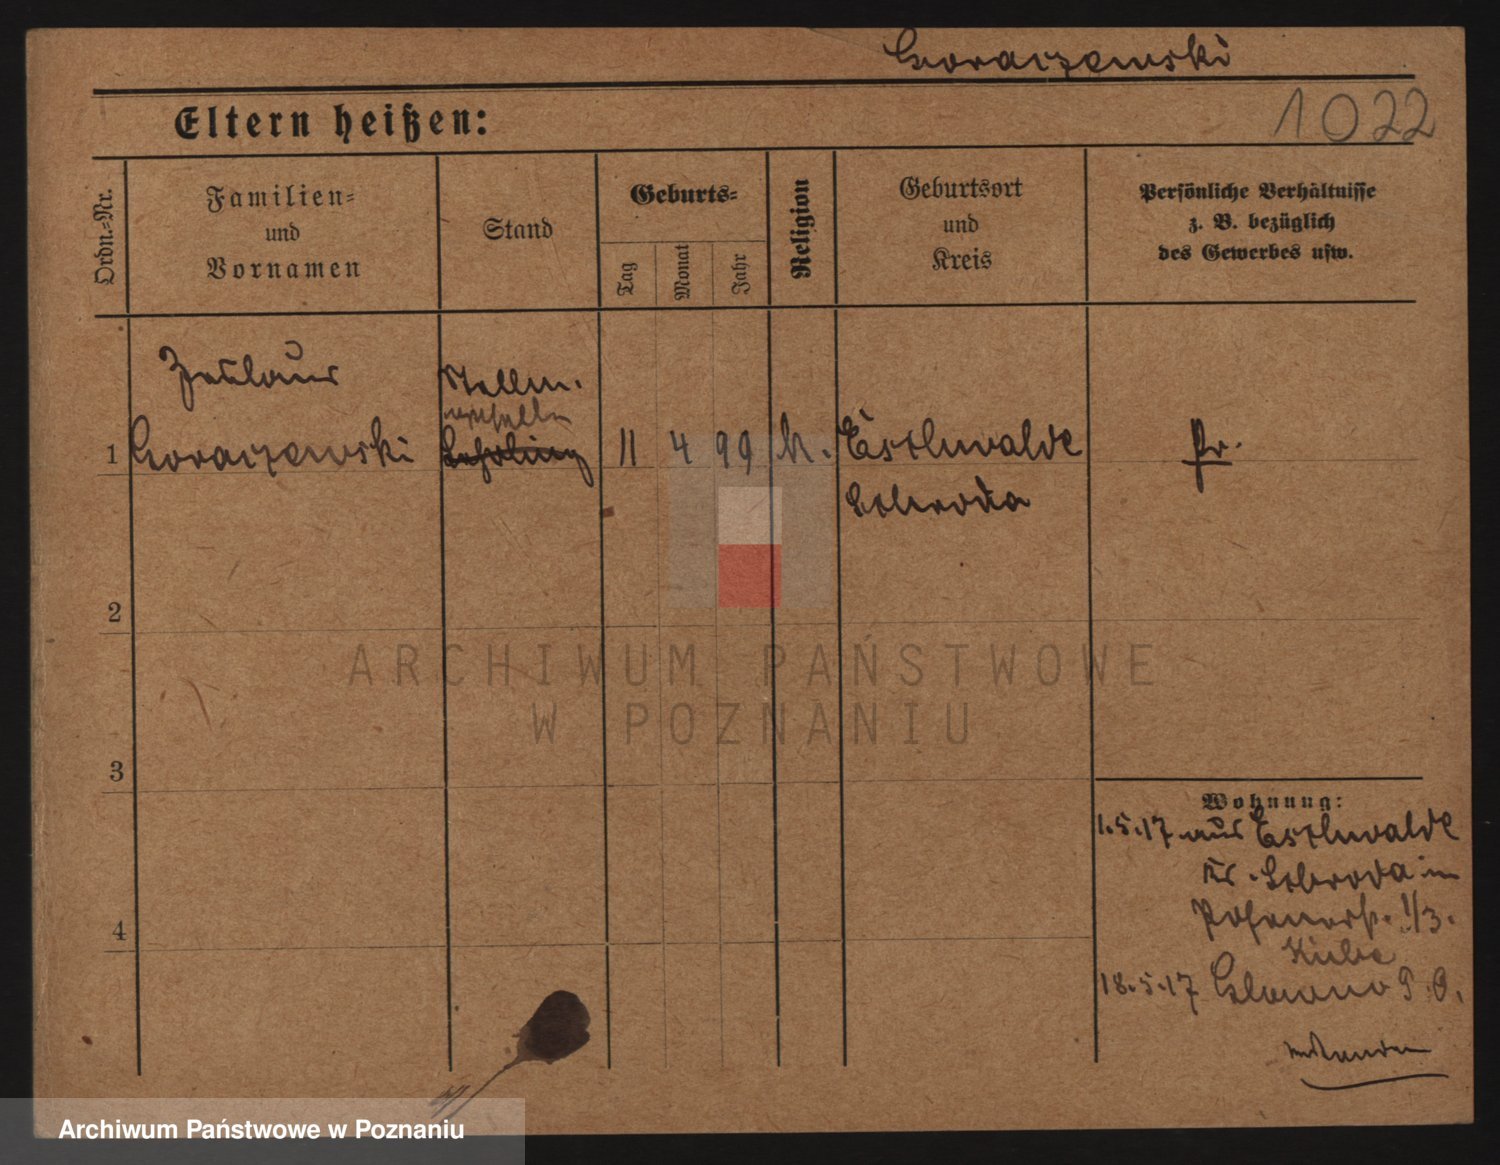 Goraczewski
1022
Eltern heißen:
Ordn.=Nr.
Familien=
und
Vornamen
Stand
Geburts=
Tag
Monat
Jahr
Religion
Geburtsort
und
Kreis
Persönliche Verhältnisse
z. B. bezüglich
des Gewerbes usw.
Stellm.
1 Goraczewski Lehrling 11 4 99 k. Eschwalde Pr.
Schroda
2
3
4
Wohnung:
1.5.17 aus
Kr. Schroda in
Posenerstr. 1/3.
18.5.17
ARCHIWUM PAŃSTWOWE
W POZNANIU
Archiwum Państwowe w Poznaniu